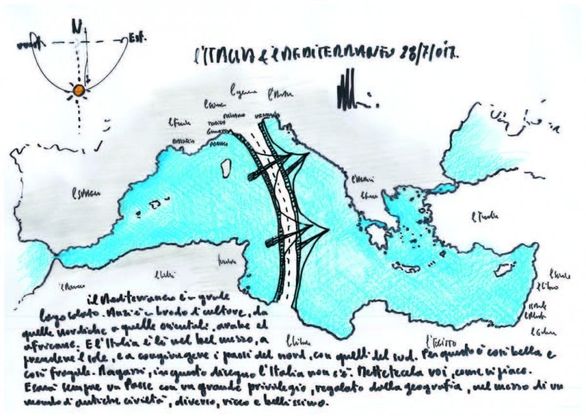 N
Est.
L'ITALIA È IL MEDITERRANEO 28/7/017.
la Francia
la Spagna
la Turchia
la Grecia
Tunisia
il Marocco
la Libia
L'EGITTO
il Mediterraneo è un grande
lago salato. Anzi è un brodo di culture, da
quelle nordiche a quelle orientali, arabe ed
africane. E l'Italia è lì nel bel mezzo, a
prendere il sole, e a congiungere i paesi del nord, con quelli del sud. Per questo è così bella e
così fragile. Ragazzi, in questo disegno l'Italia non c'è. Mettetecela voi, come vi piace.
Esarà sempre un Paese con un grande privilegio, regalato dalla geografia, nel mezzo di un
mondo di antiche civiltà, diverso, ricco e bellissimo.